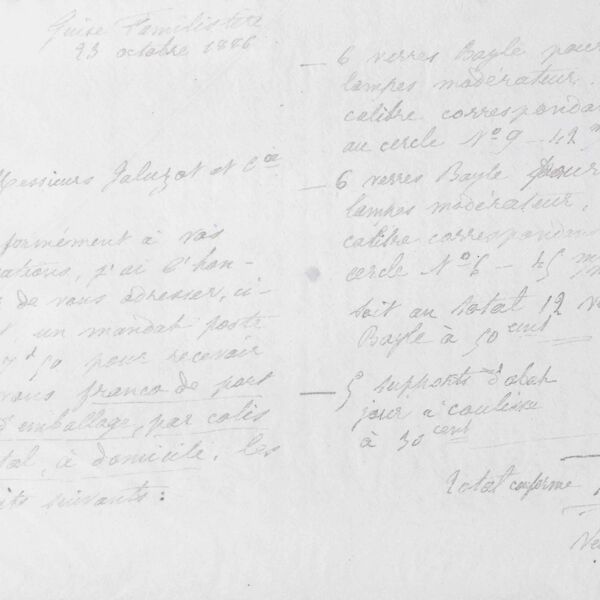 Guise Familistère
23 octobre 1886
Messieurs Jaluzot et Cie
formément à vos
ations, j'ai l'hon-
de vous adresser, ci-
un mandat poste
50 pour recevoir
vous franco de port
d'emballage, par colis
tal, à domicile, les
its suivants :
— 6 verres Bayle pour
lampes modérateur,
calibre correspondan
au cercle No 9 – 42 m
— 6 verres Bayle pour
lampes modérateur,
calibre correspondan
cercle No 6 – 45 m
soit au total 12 ve
Bayle à 50 cent
— 5 supports d'abat
jour à coulisse
à 30 cent
Total conforme